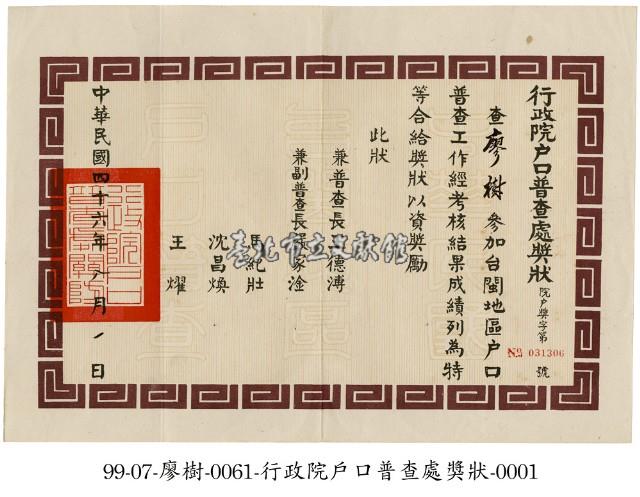 行政院戶口普查處獎狀
院戶獎字第 № 031306 號
查廖樹參加台閩地區戶口
普查工作經考核結果成績列為特
等合給獎狀以資獎勵
此狀
兼普查長王德溥
兼副普查長張家淦
馬紀壯
沈昌煥
王耀
中華民國四十六年 月 日
行政院戶口普查處關防
臺北市立文獻館
99-07-廖樹-0061-行政院戶口普查處獎狀-0001